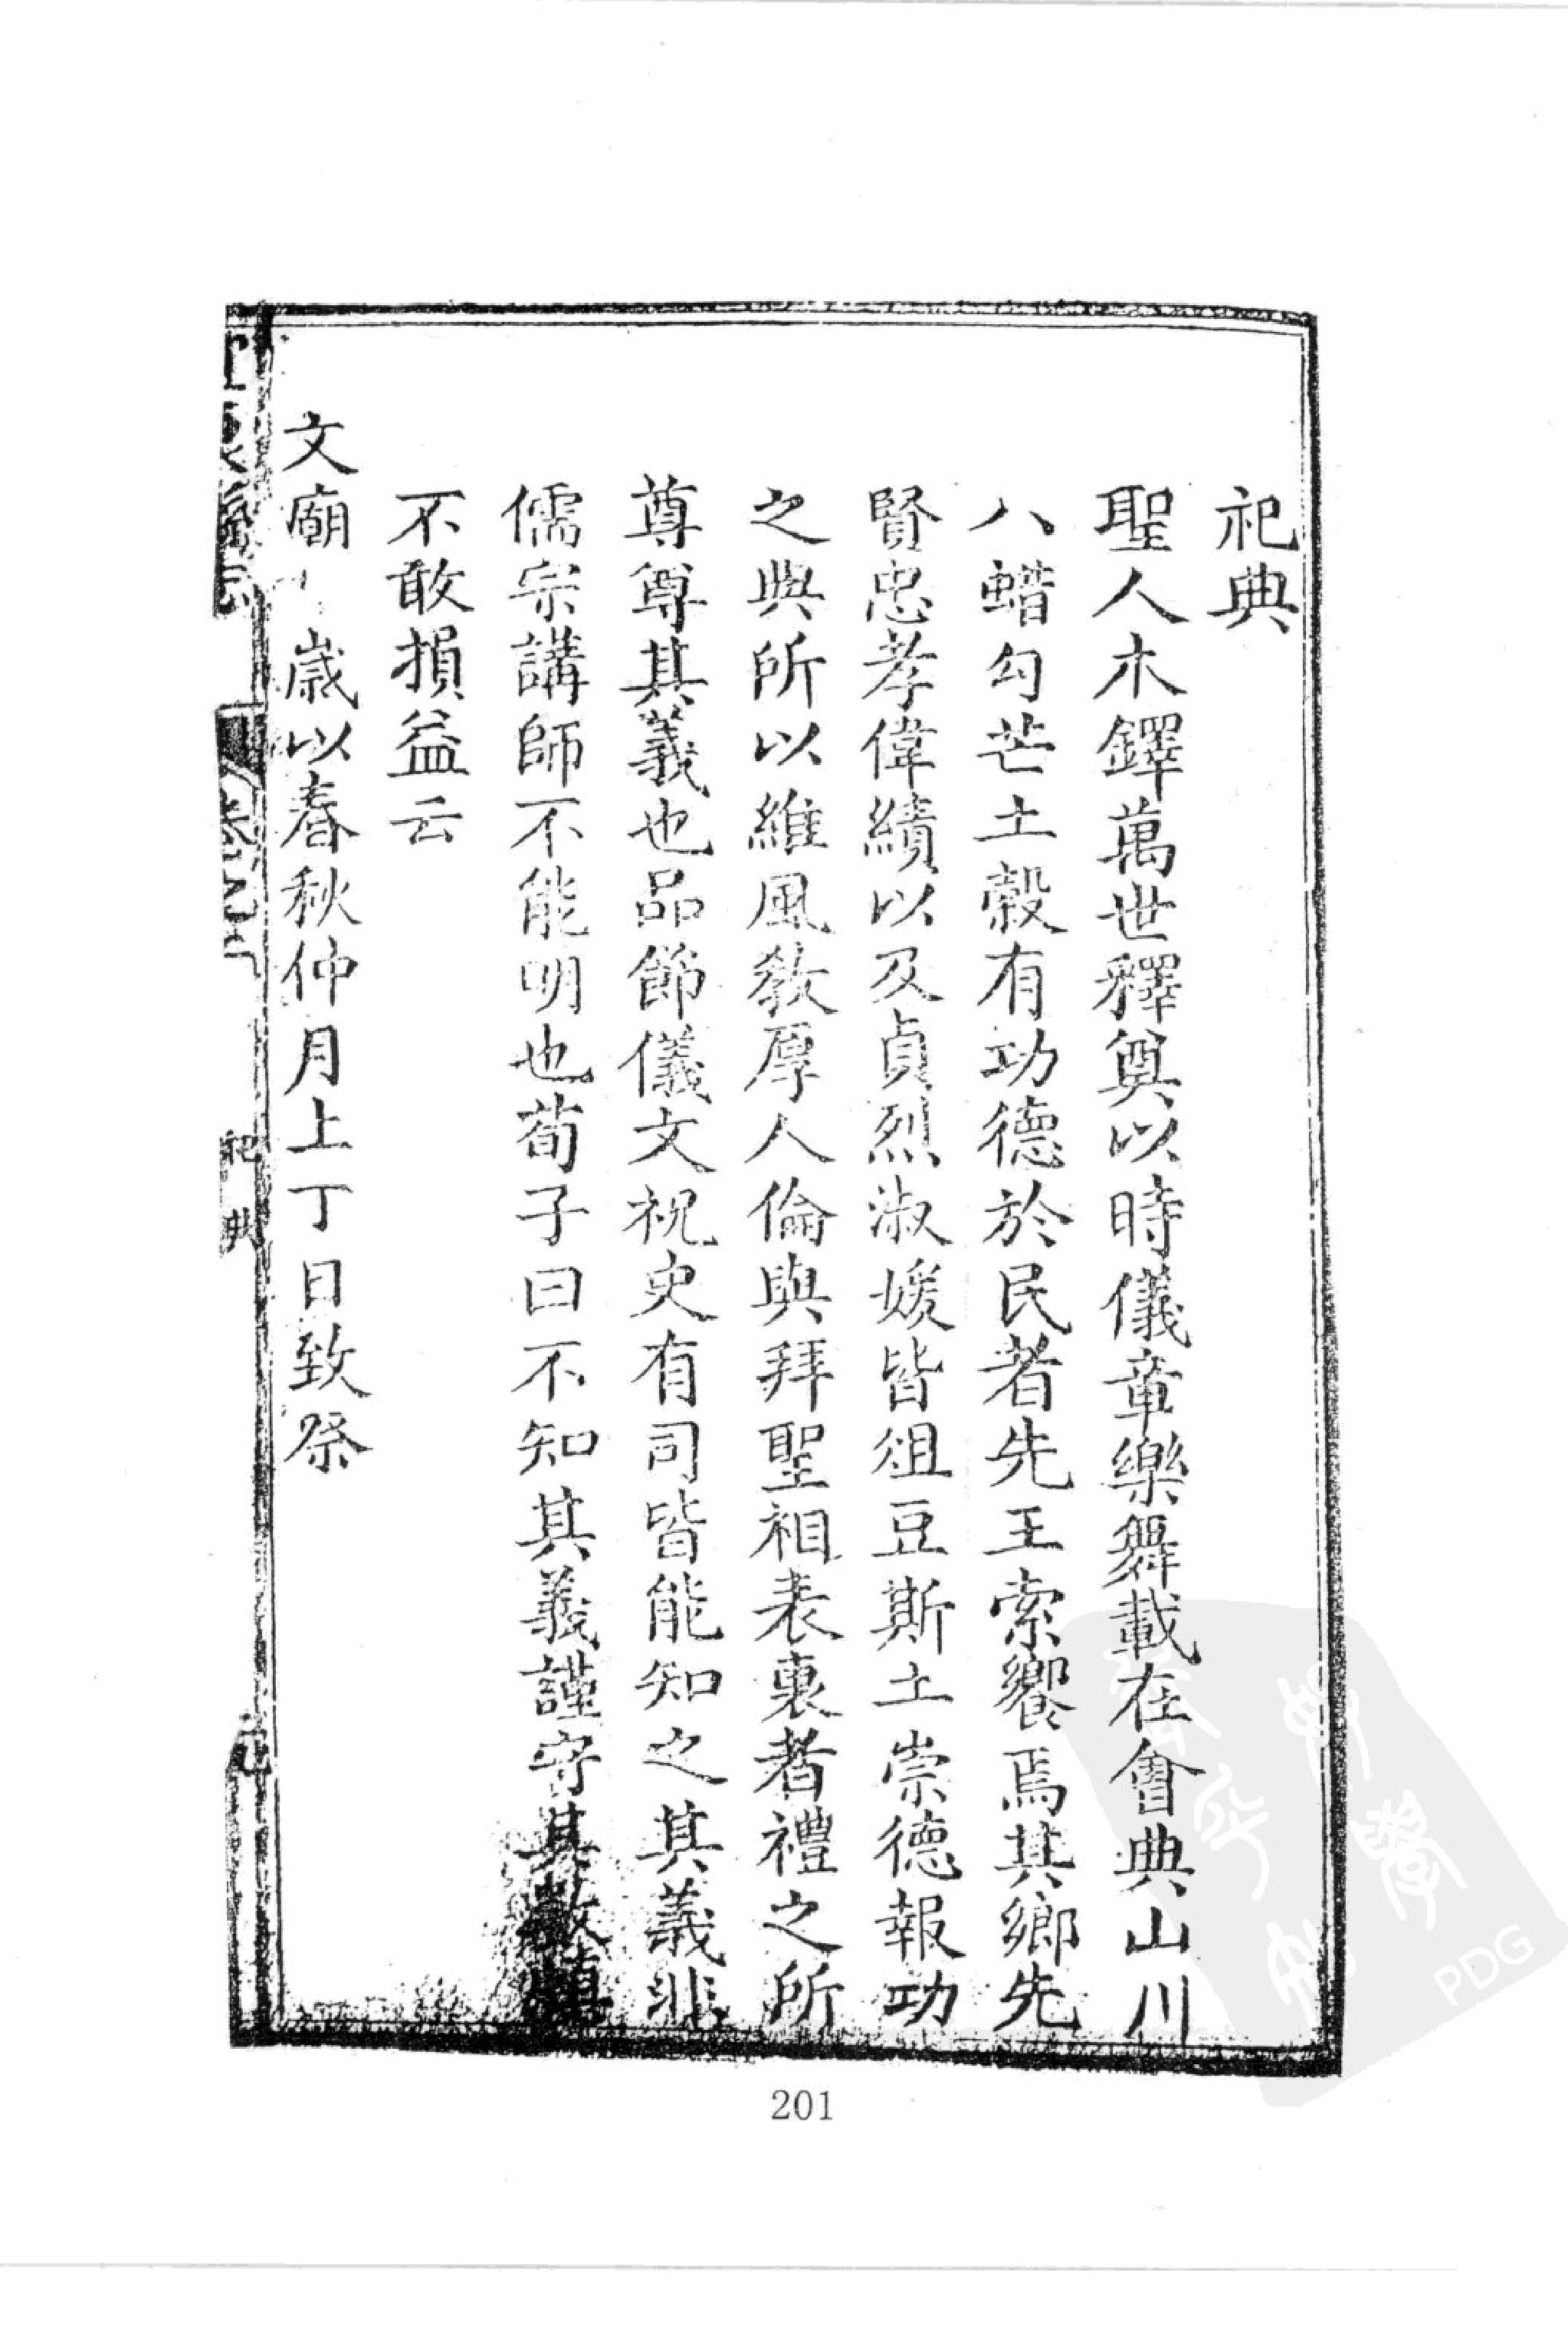 祀典
聖人木鐸萬世釋奠以時儀章樂舞載在會典山川
八蜡勾芒土穀有功德於民者先王索饗焉其鄉先
賢忠孝偉績以及貞烈淑媛皆俎豆斯土崇德報功
之典所以維風敎厚人倫與拜聖相表裏者禮之所
尊尊其義也品節儀文祝史有司皆能知之其義非
儒宗講師不能明也荀子曰不知其義謹守其數慎
不敢損益云
文廟 歲以春秋仲月上丁日致祭
縣志 卷之二 祀典
201
PDG